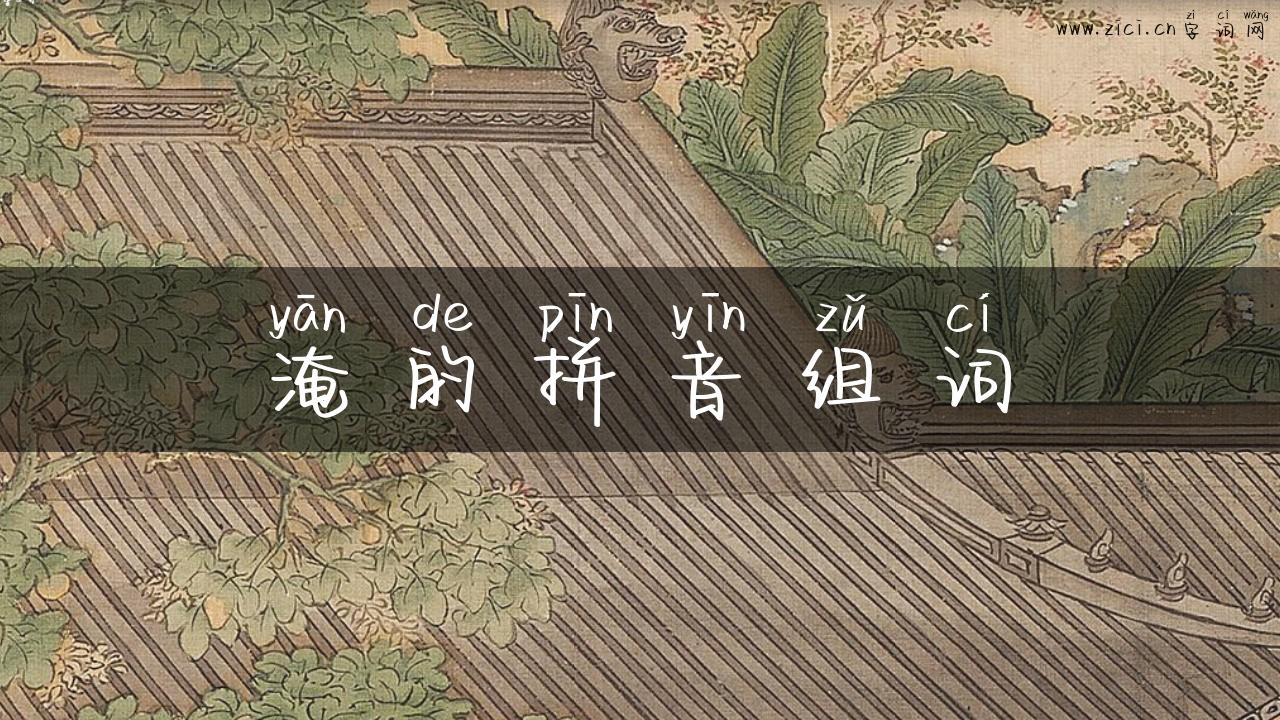 zì cí wǎng
www.zici.cn 字词网
yān de pīn yīn zǔ cí
淹的拼音组词